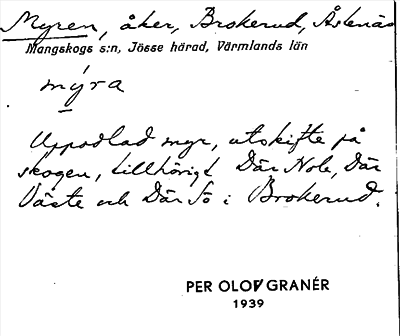 Myren, åker, Brokerud, Åstenäs
Mangskogs s:n, Jösse härad, Värmlands län
mýra
Uppodlad myr, utskifte på
skogen, tillhörigt Där Nole, Där
Väste och Där Sö i Brokerud.
PER OLOF GRANÉR
1939